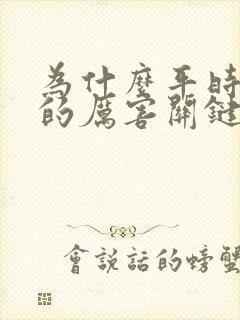 為什麼平時
的厲害關鍵
會說話的螃蟹